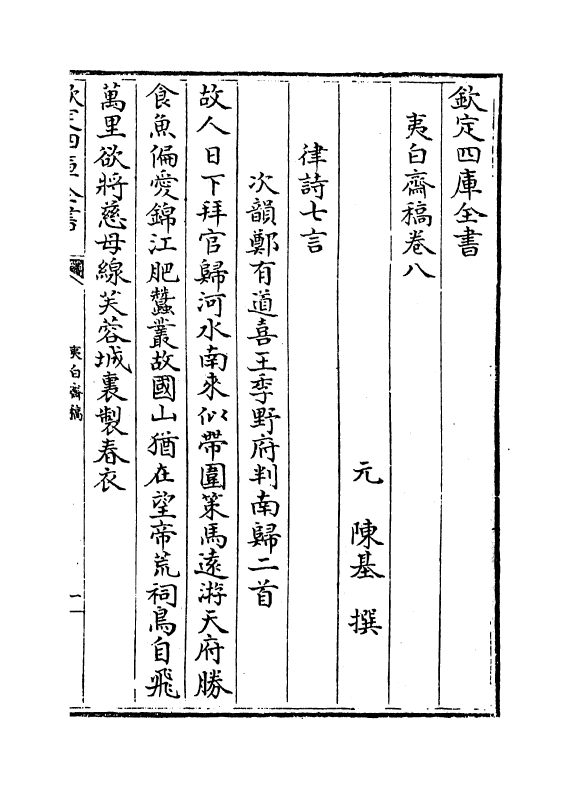 欽定四庫全書
夷白齋稿卷八
元　陳基　撰
律詩七言
次韻鄭有道喜王季野府判南歸二首
故人日下拜官歸河水南來似帶圍策馬遠游天府勝
食魚偏愛錦江肥蠶叢故國山猶在望帝荒祠鳥自飛
萬里欲將慈母線芙蓉城裏製春衣
欽定四庫全書
夷白齋稿
一